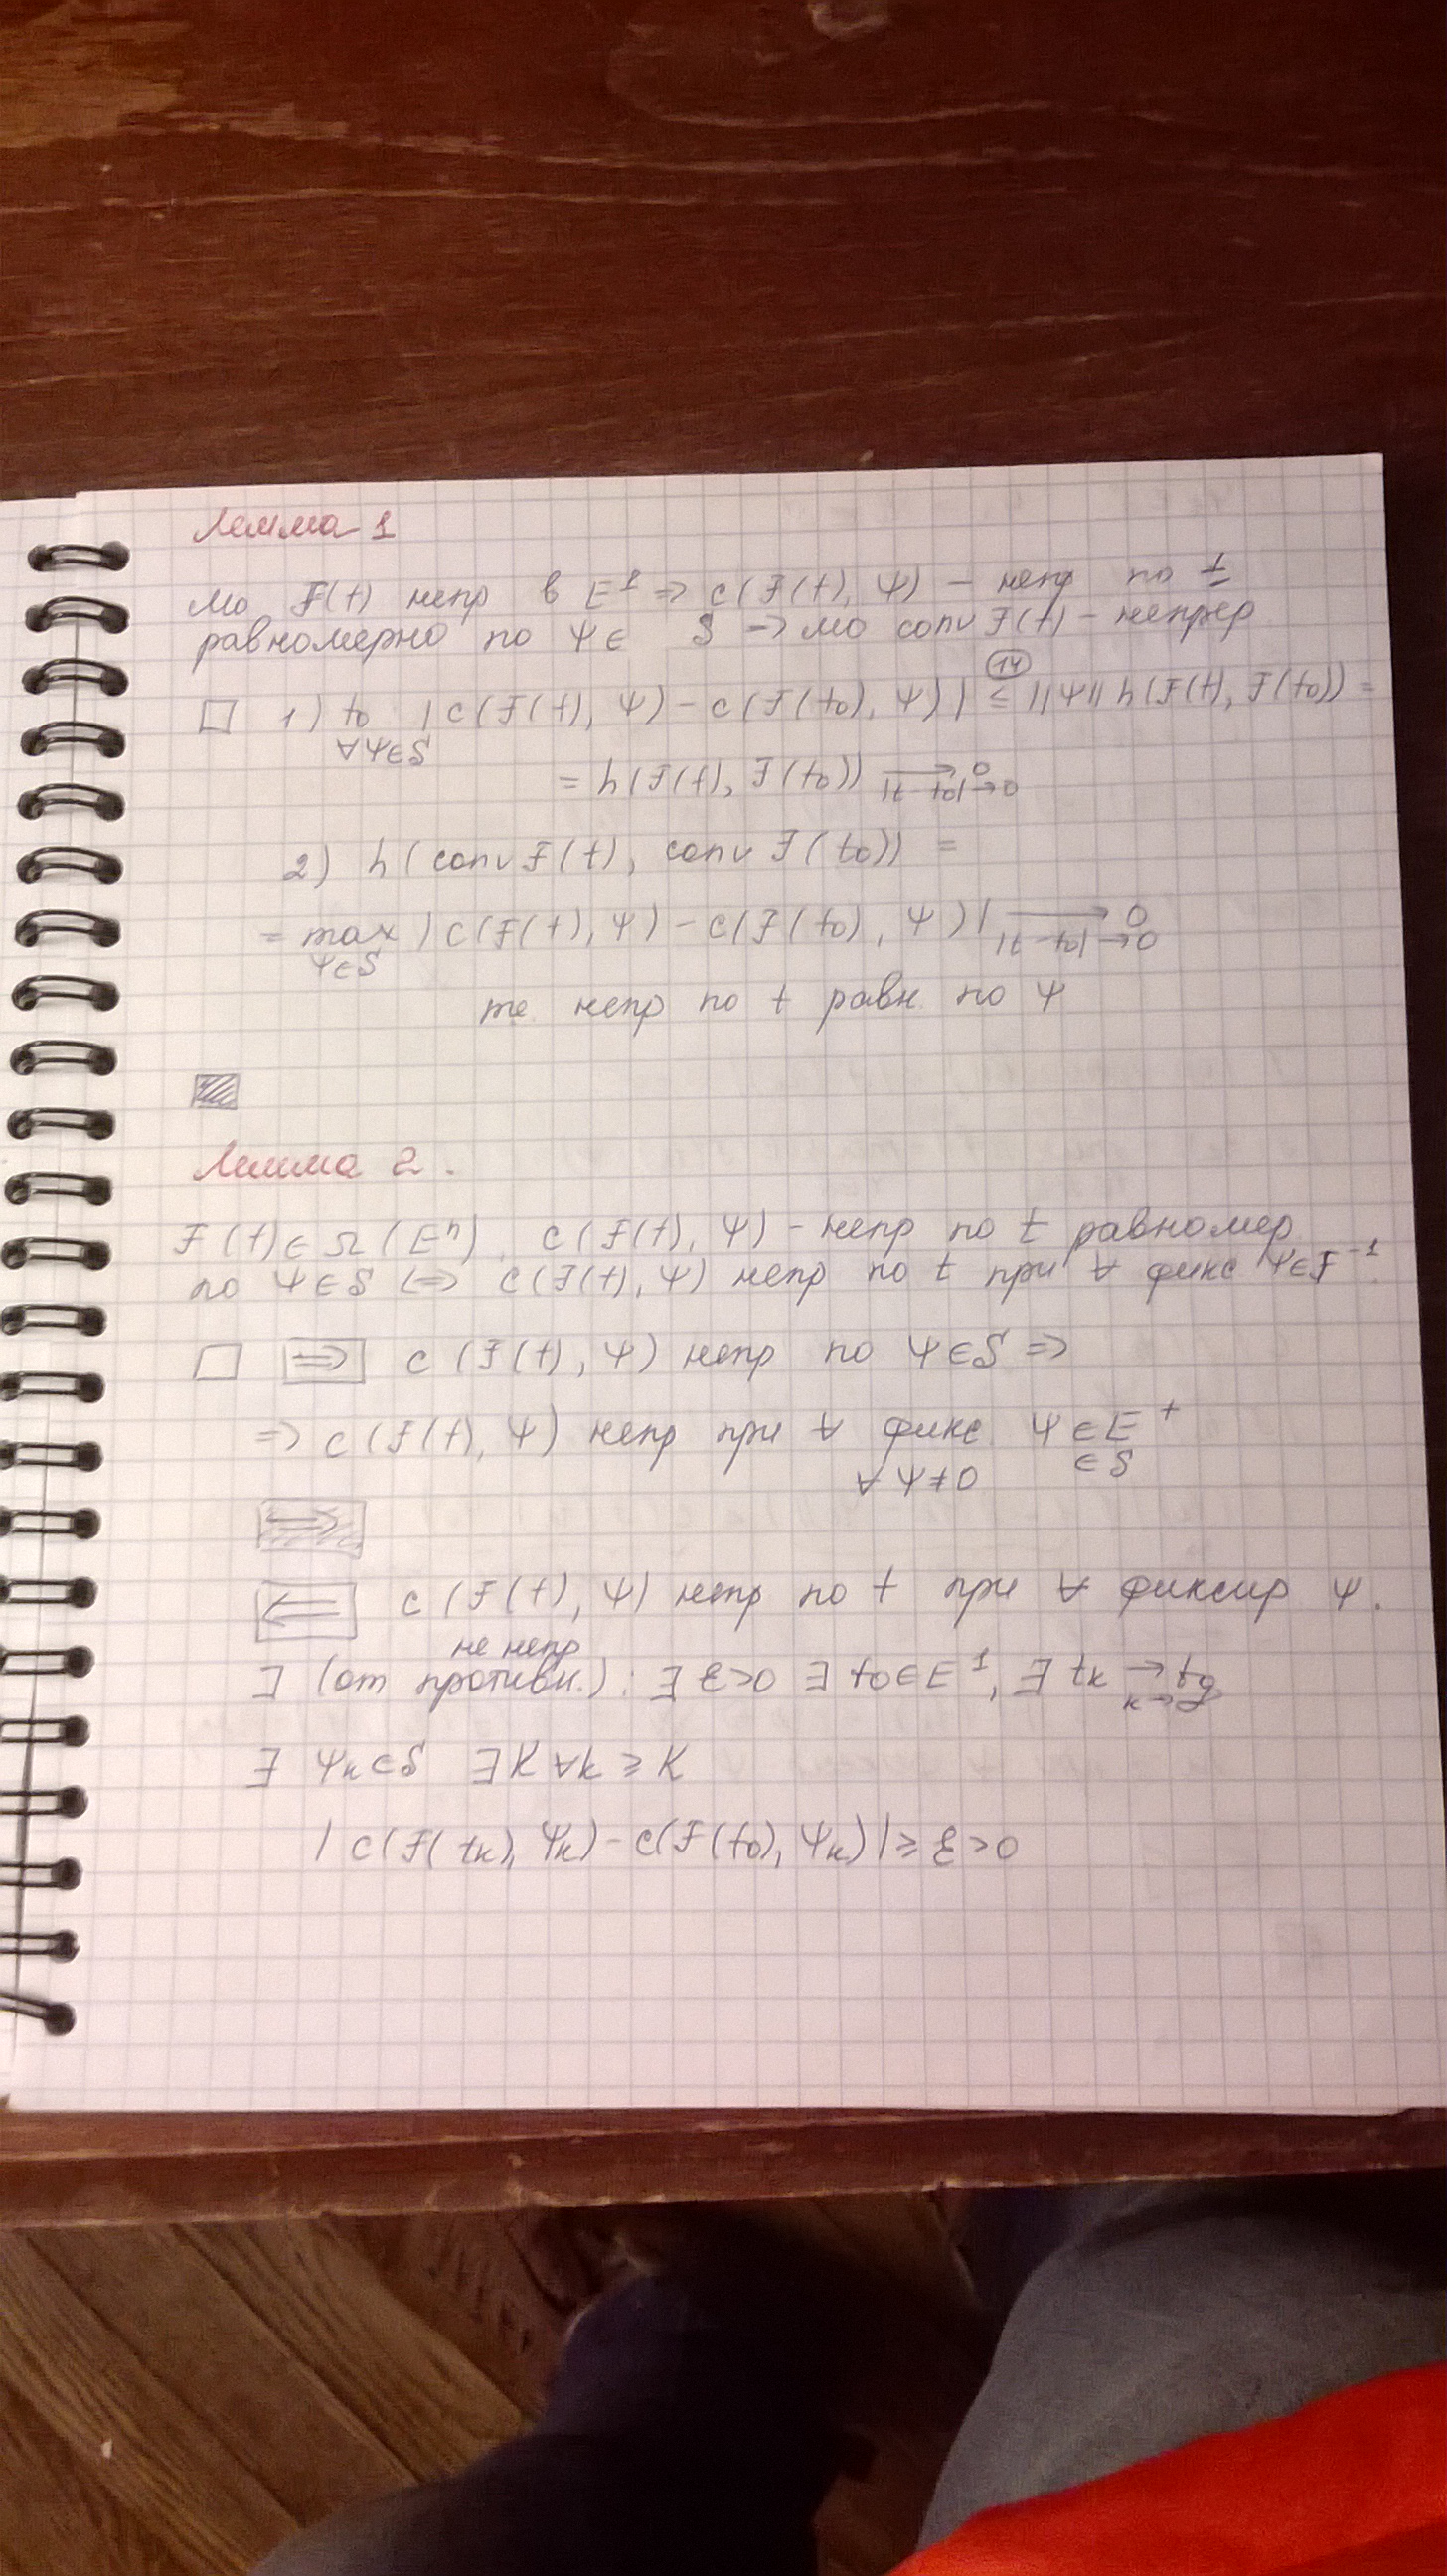 Лемма 1
Мо F(t) непр в E¹ ⇒ c(F(t), Ψ) – непр по t
равномерно по Ψ ∈ S → Мо conv F(t) – непрер
□ 1) t₀ |c(F(t), Ψ) – c(F(t₀), Ψ)| ≤ ||Ψ|| h(F(t), F(t₀)) =
(14)
∀Ψ∈S
= h(F(t), F(t₀)) → 0
|t–t₀|→0
2) h(conv F(t), conv F(t₀)) =
= max |c(F(t), Ψ) – c(F(t₀), Ψ)| → 0
Ψ∈S |t–t₀|→0
те непр по t равн. по Ψ
Лемма 2.
F(t) ∈ Ω(Eⁿ). c(F(t), Ψ) – непр по t равномер
по Ψ∈S ⇔ c(F(t), Ψ) непр по t при ∀ фикс Ψ∈F⁻¹.
□ ⇒ c(F(t), Ψ) непр по Ψ∈S ⇒
⇒ c(F(t), Ψ) непр при ∀ фикс Ψ ∈ E⁺
∀Ψ≠0 ∈S
⇒
⇐ c(F(t), Ψ) непр по t при ∀ фиксир Ψ.
не непр
∃ (от противн.): ∃ ε>0 ∃ t₀∈E¹, ∃ tₖ → t₀
k→∞
∃ Ψₖ∈S ∃K ∀k ≥ K
|c(F(tₖ), Ψₖ) – c(F(t₀), Ψₖ)| ≥ ε > 0